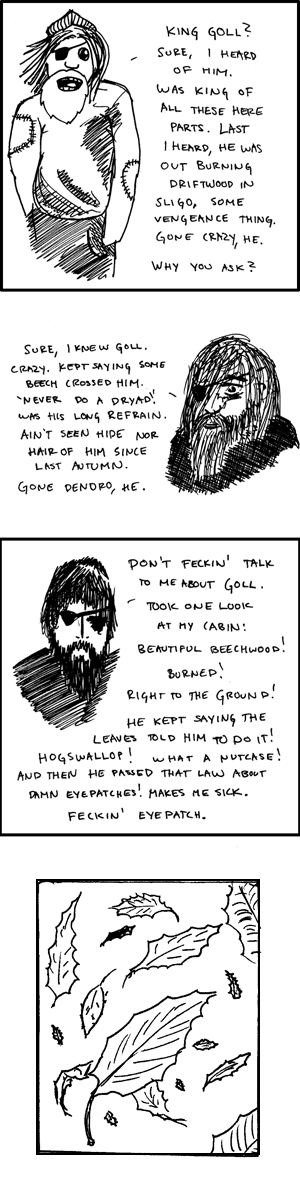 KING GOLL?
SURE, I HEARD
OF HIM.
WAS KING OF
ALL THESE HERE
PARTS. LAST
I HEARD, HE WAS
OUT BURNING
DRIFTWOOD IN
SLIGO, SOME
VENGEANCE THING.
GONE CRAZY, HE.
WHY YOU ASK?
SURE, I KNEW GOLL.
CRAZY. KEPT SAYING SOME
BEECH CROSSED HIM.
"NEVER DO A DRYAD!"
WAS HIS LONG REFRAIN.
AIN'T SEEN HIDE NOR
HAIR OF HIM SINCE
LAST AUTUMN.
GONE DENDRO, HE.
DON'T FECKIN' TALK
TO ME ABOUT GOLL.
TOOK ONE LOOK
AT MY CABIN:
BEAUTIFUL BEECHWOOD!
BURNED!
RIGHT TO THE GROUND!
HE KEPT SAYING THE
LEAVES TOLD HIM TO DO IT!
HOGSWALLOP! WHAT A NUTCASE!
AND THEN HE PASSED THAT LAW ABOUT
DAMN EYEPATCHES! MAKES ME SICK.
FECKIN' EYEPATCH.